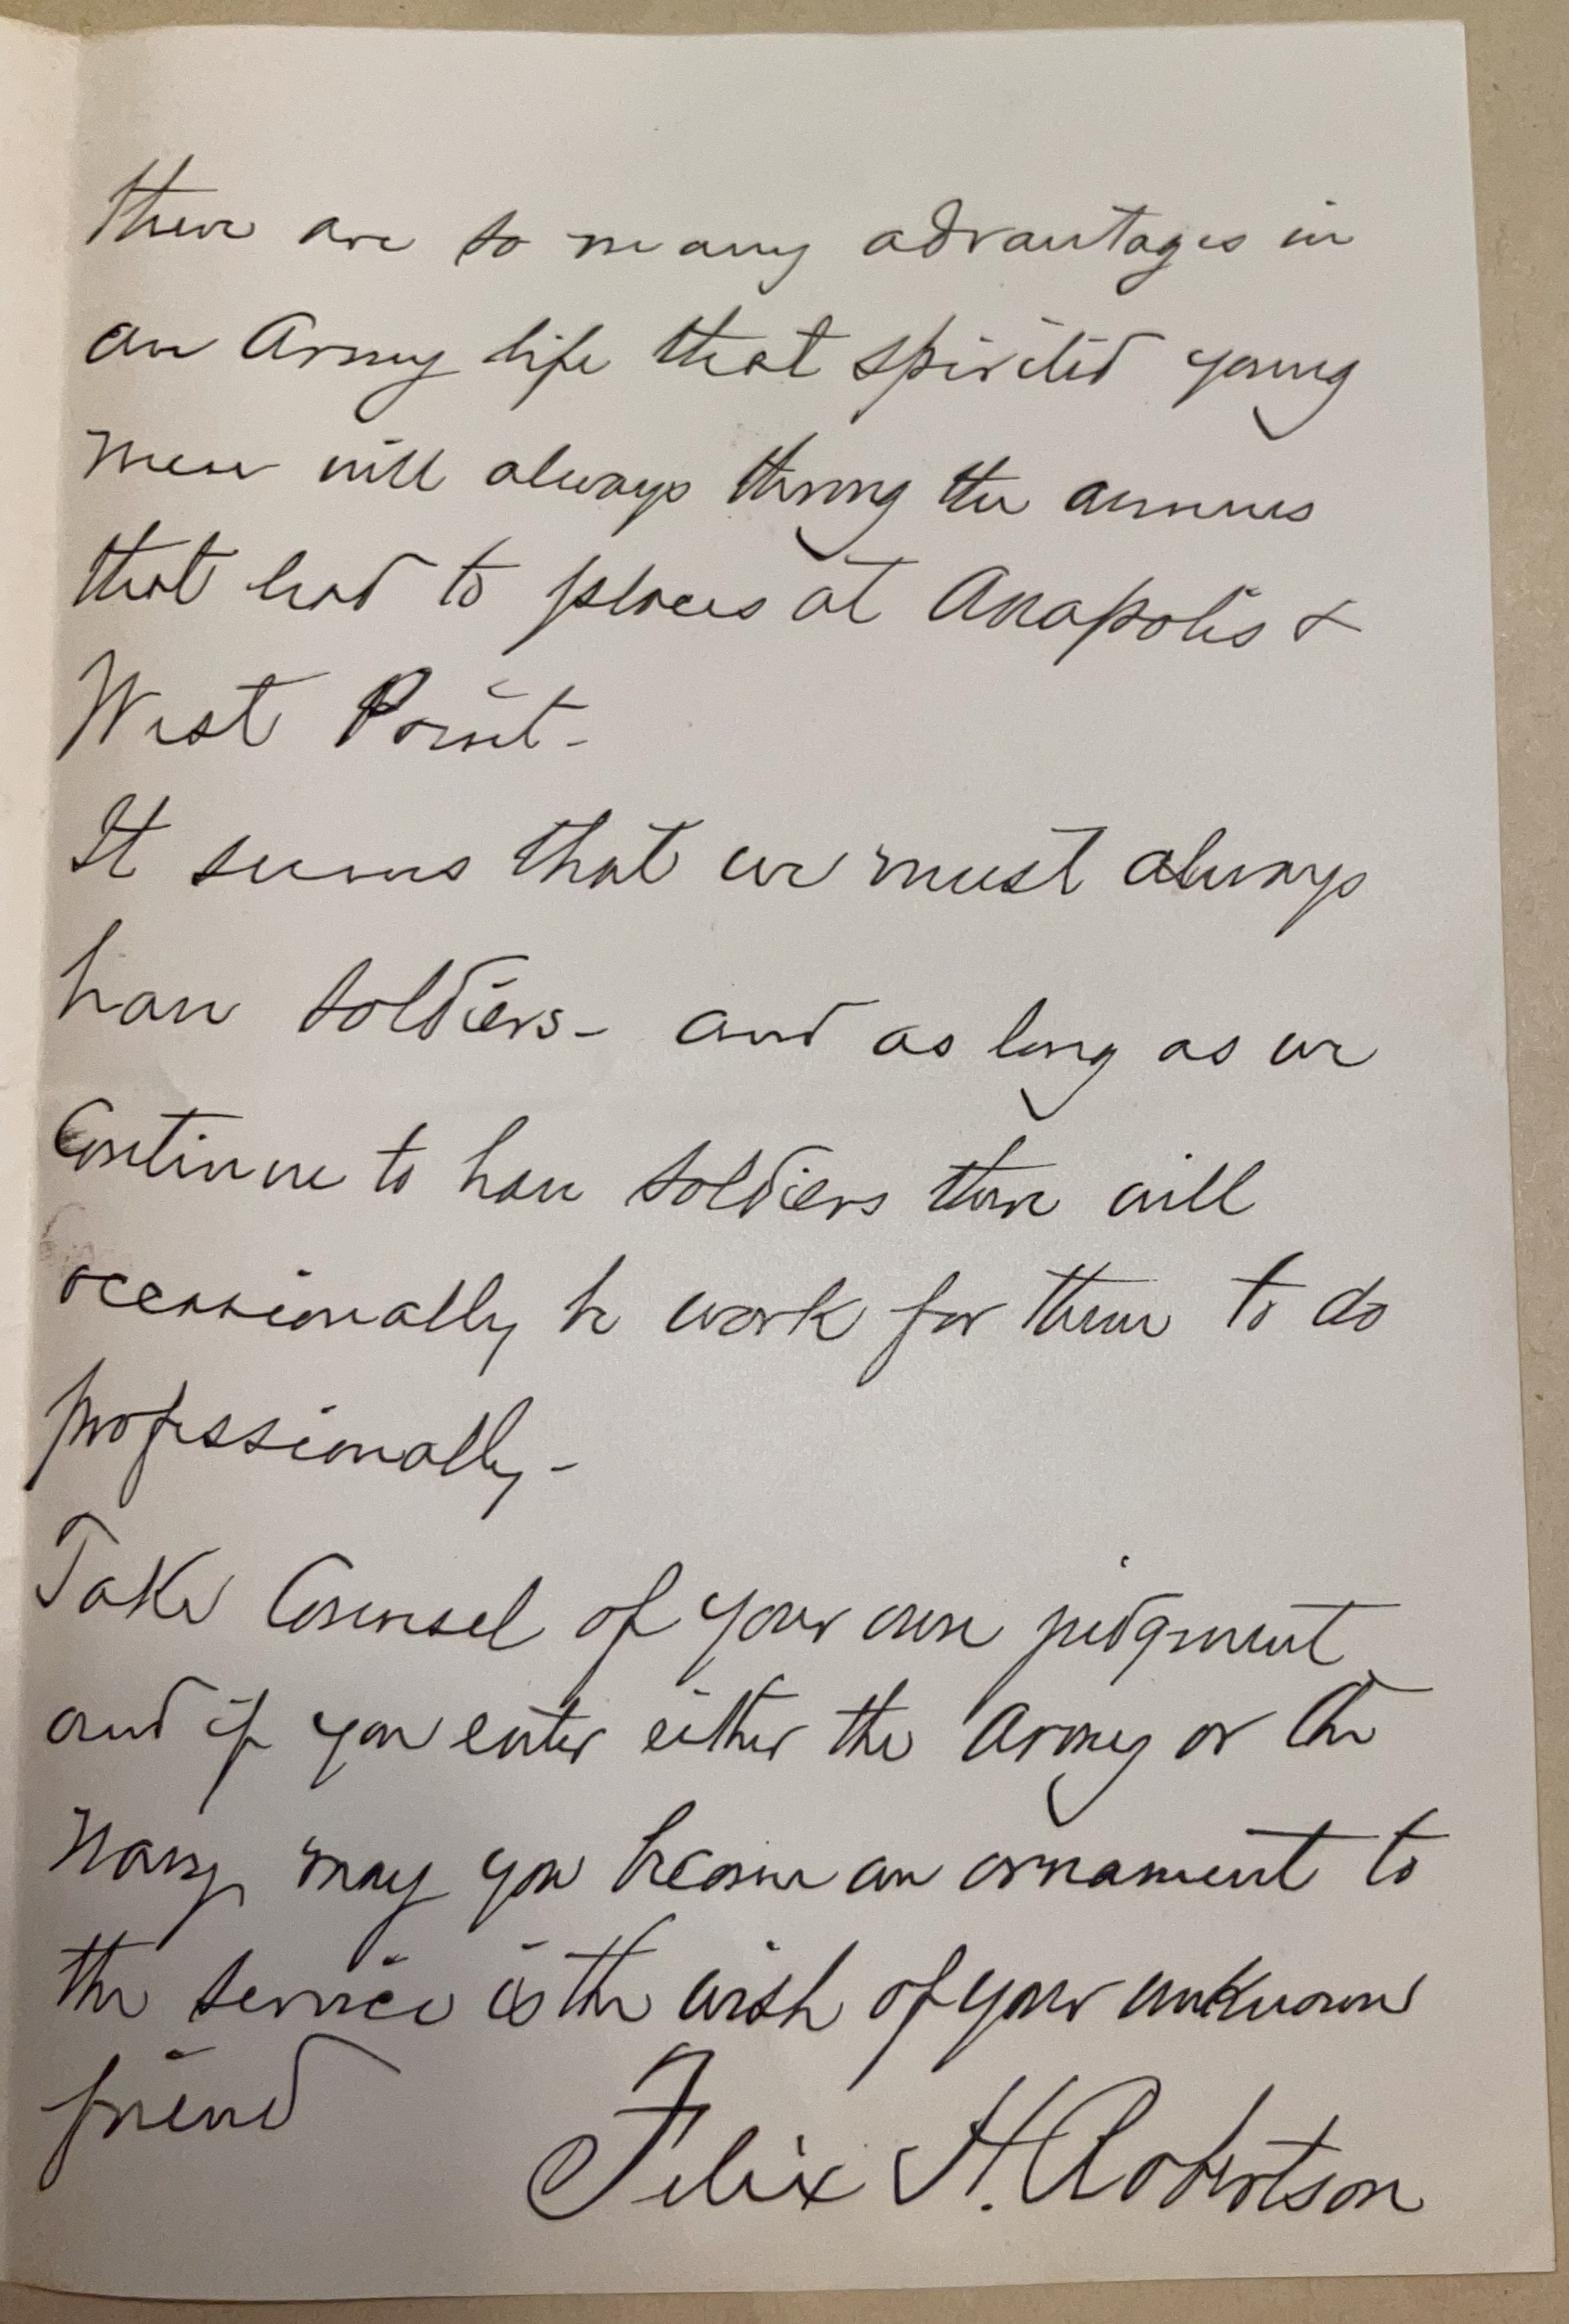 there are so many advantages in
an Army life that spirited young
men will always throng the avenues
that lead to places at Anapolis &
West Point-
It seems that we must always
have soldiers- and as long as we
Continue to have soldiers there will
occassionally be work for them to do
professionally-
Take Counsel of your own judgment
and if you enter either the Army or the
Navy, may you become an ornament to
the service is the wish of your unknown
friend
Felix H. Robertson